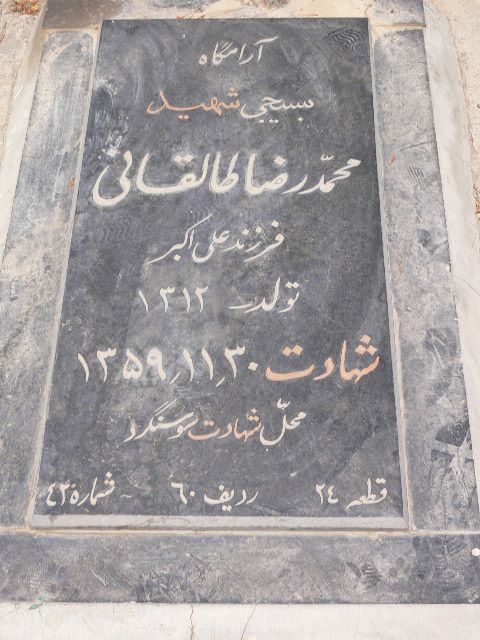 آرامگاه
بسیجی شهید
محمّد رضا طالقانی
فرزند علی اکبر
تولد ۱۳۱۲
شهادت ۱۳۵۹٫۱۱٫۳۰
محلّ شهادت سوسنگرد
قطعه ۲۴ ردیف ۶۰ شماره ۴۲